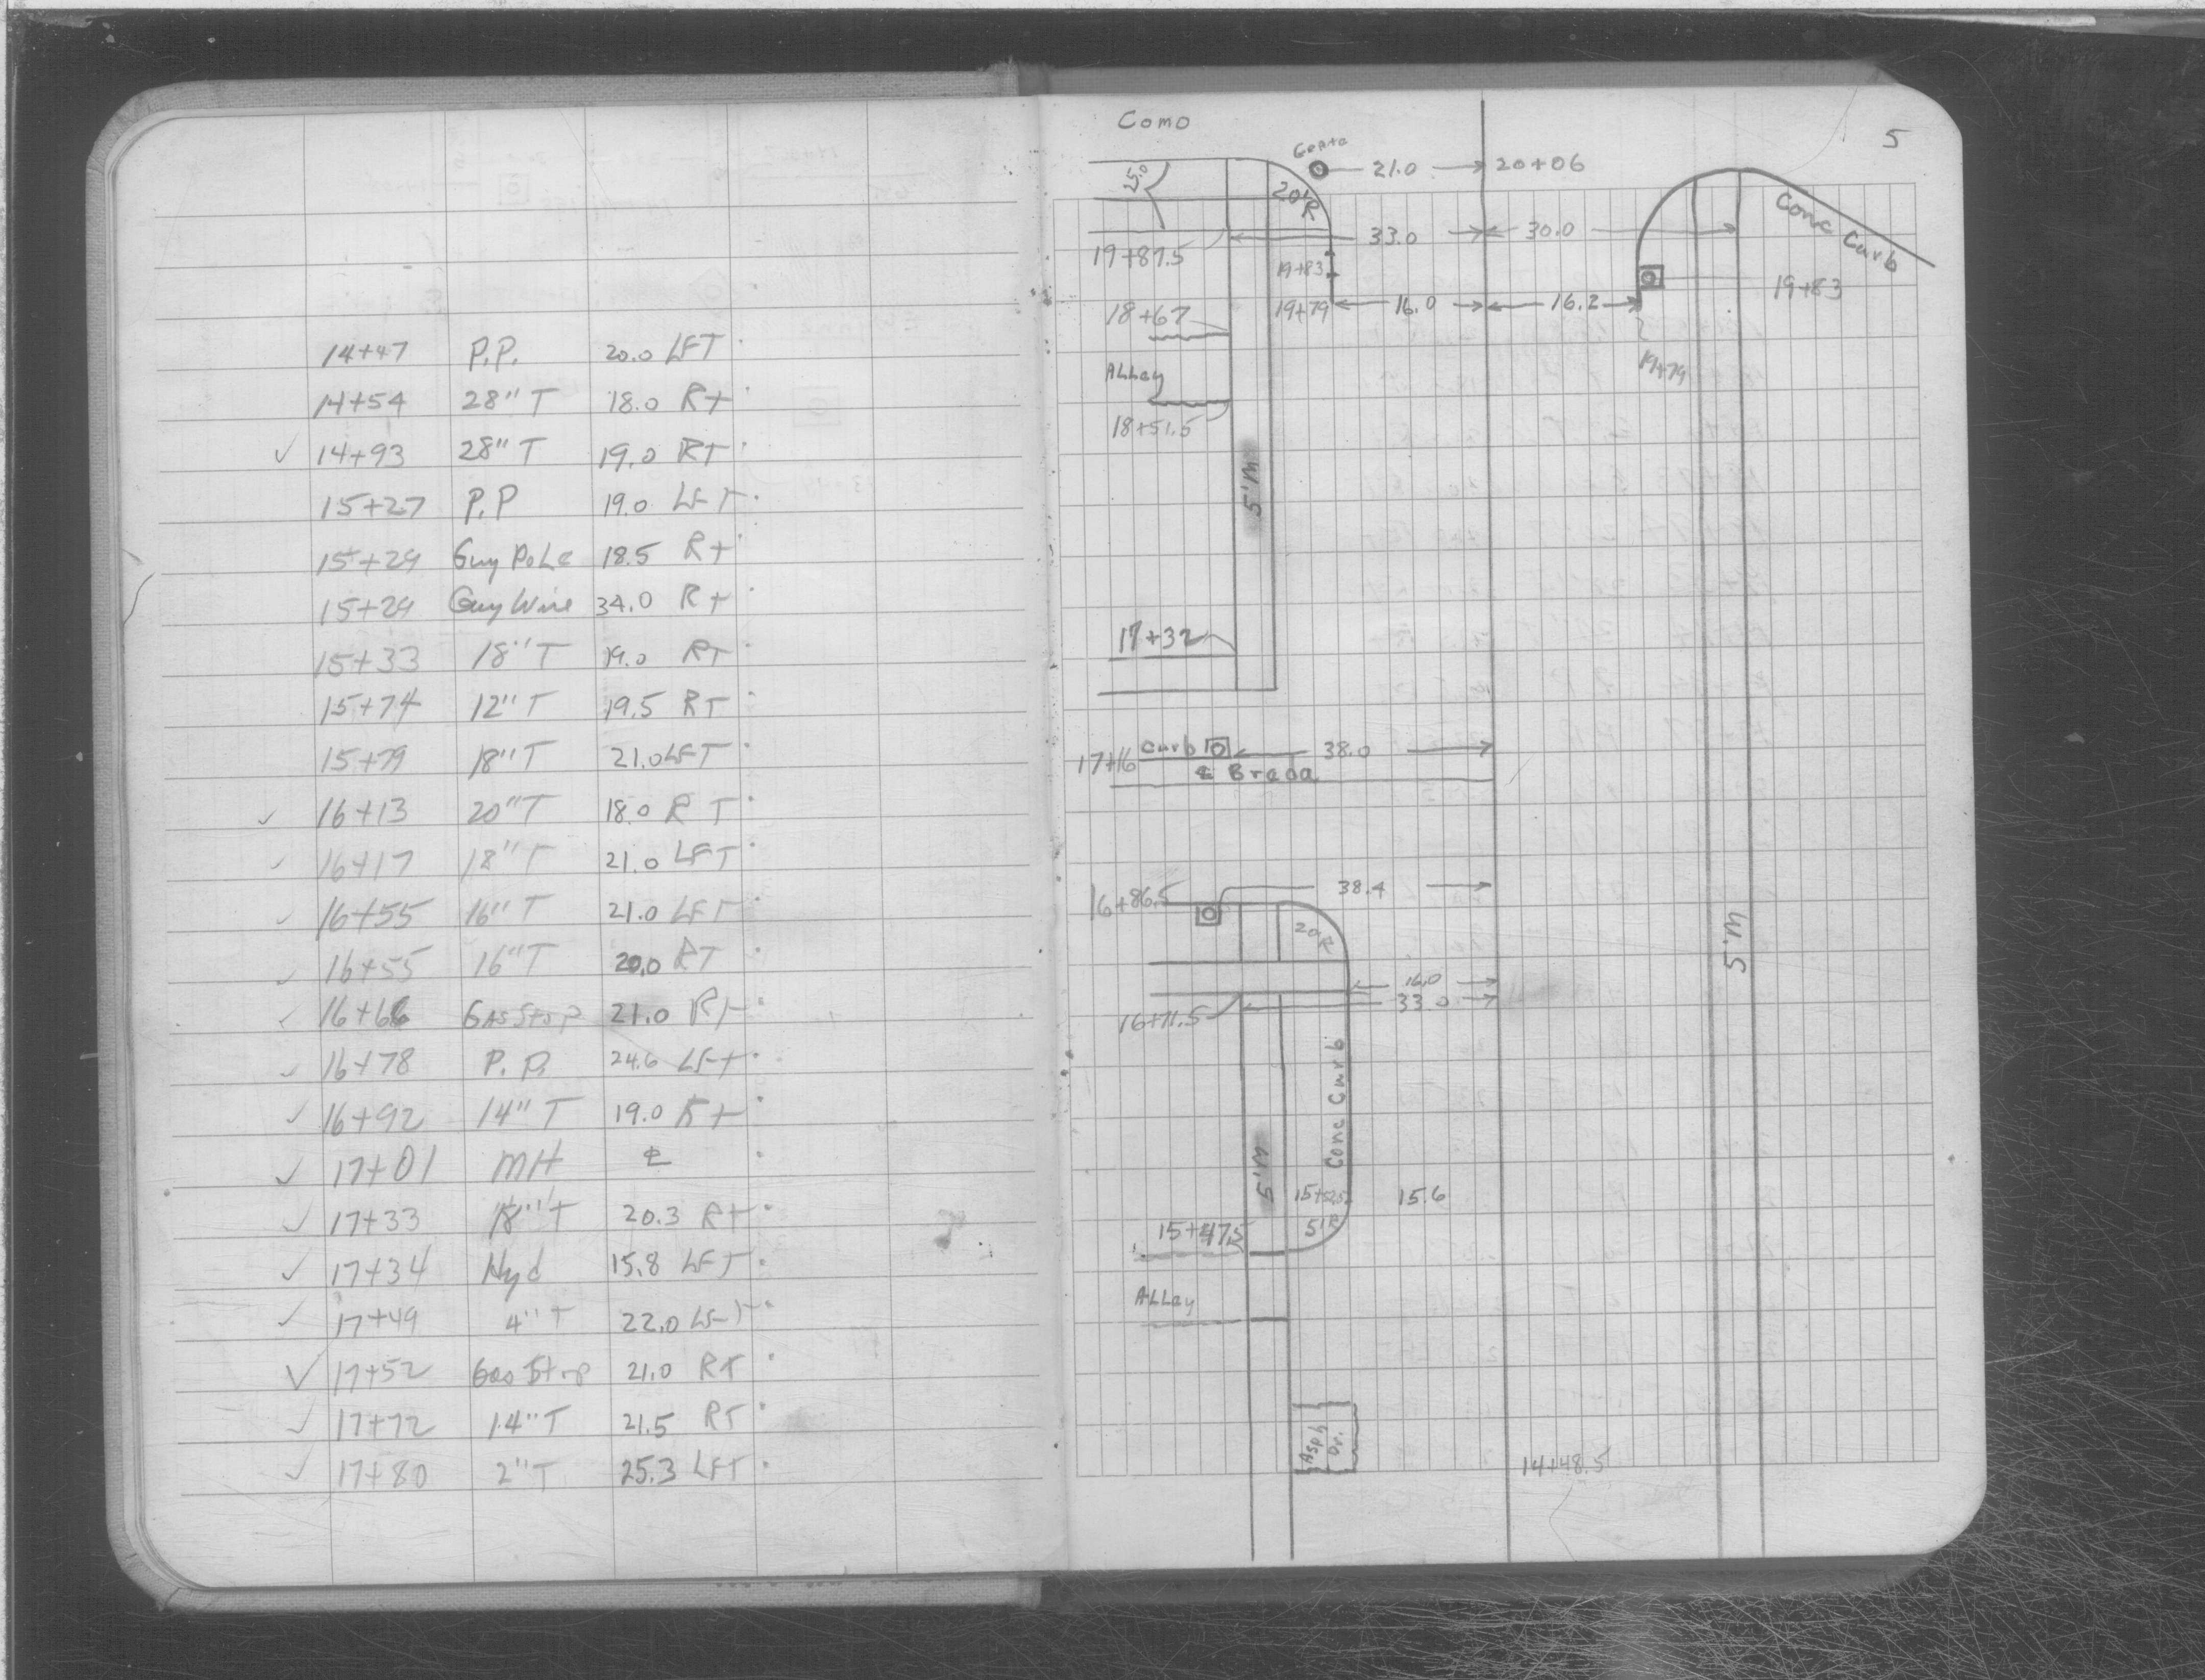 14+47 P.P. 20.0 LFT
14+54 28" T 18.0 Rt
✓ 14+93 28" T 19.0 RT
15+27 P.P 19.0 LFT
15+29 Guy Pole 18.5 Rt
15+29 Guy Wire 34.0 Rt
15+33 18" T 19.0 RT
15+74 12" T 19.5 RT
15+79 18" T 21.0 LFT
✓ 16+13 20" T 18.0 RT
✓ 16+17 18" T 21.0 LFT
✓ 16+55 16" T 21.0 LFT
✓ 16+55 16" T 20.0 RT
✓ 16+66 Gas Stop 21.0 Rt
✓ 16+78 P.P. 24.6 LFt
✓ 16+92 14" T 19.0 Rt
✓ 17+01 MH ℄
✓ 17+33 18" T 20.3 Rt
✓ 17+34 Hyd 15.8 LFT
✓ 17+49 4" T 22.0 LFT
✓ 17+52 Gas Stop 21.0 RT
✓ 17+72 14" T 21.5 RT
✓ 17+80 2" T 25.3 LFT
5
Como
21.0 20+06
25.0
20'R
Conc Curb
33.0 30.0
19+87.5
19+83
19+83
18+67
19+79 16.0 16.2
19+79
ALLey
18+51.5
5' M
17+32
17+16 Curb 38.0
℄ Breda
16+86.5 38.4
20'R
5' M
16.0
33.0
16+71.5
Conc Curb
5' M
15.6
15+47.5
5'R
ALLey
Asph Dr.
14+48.5